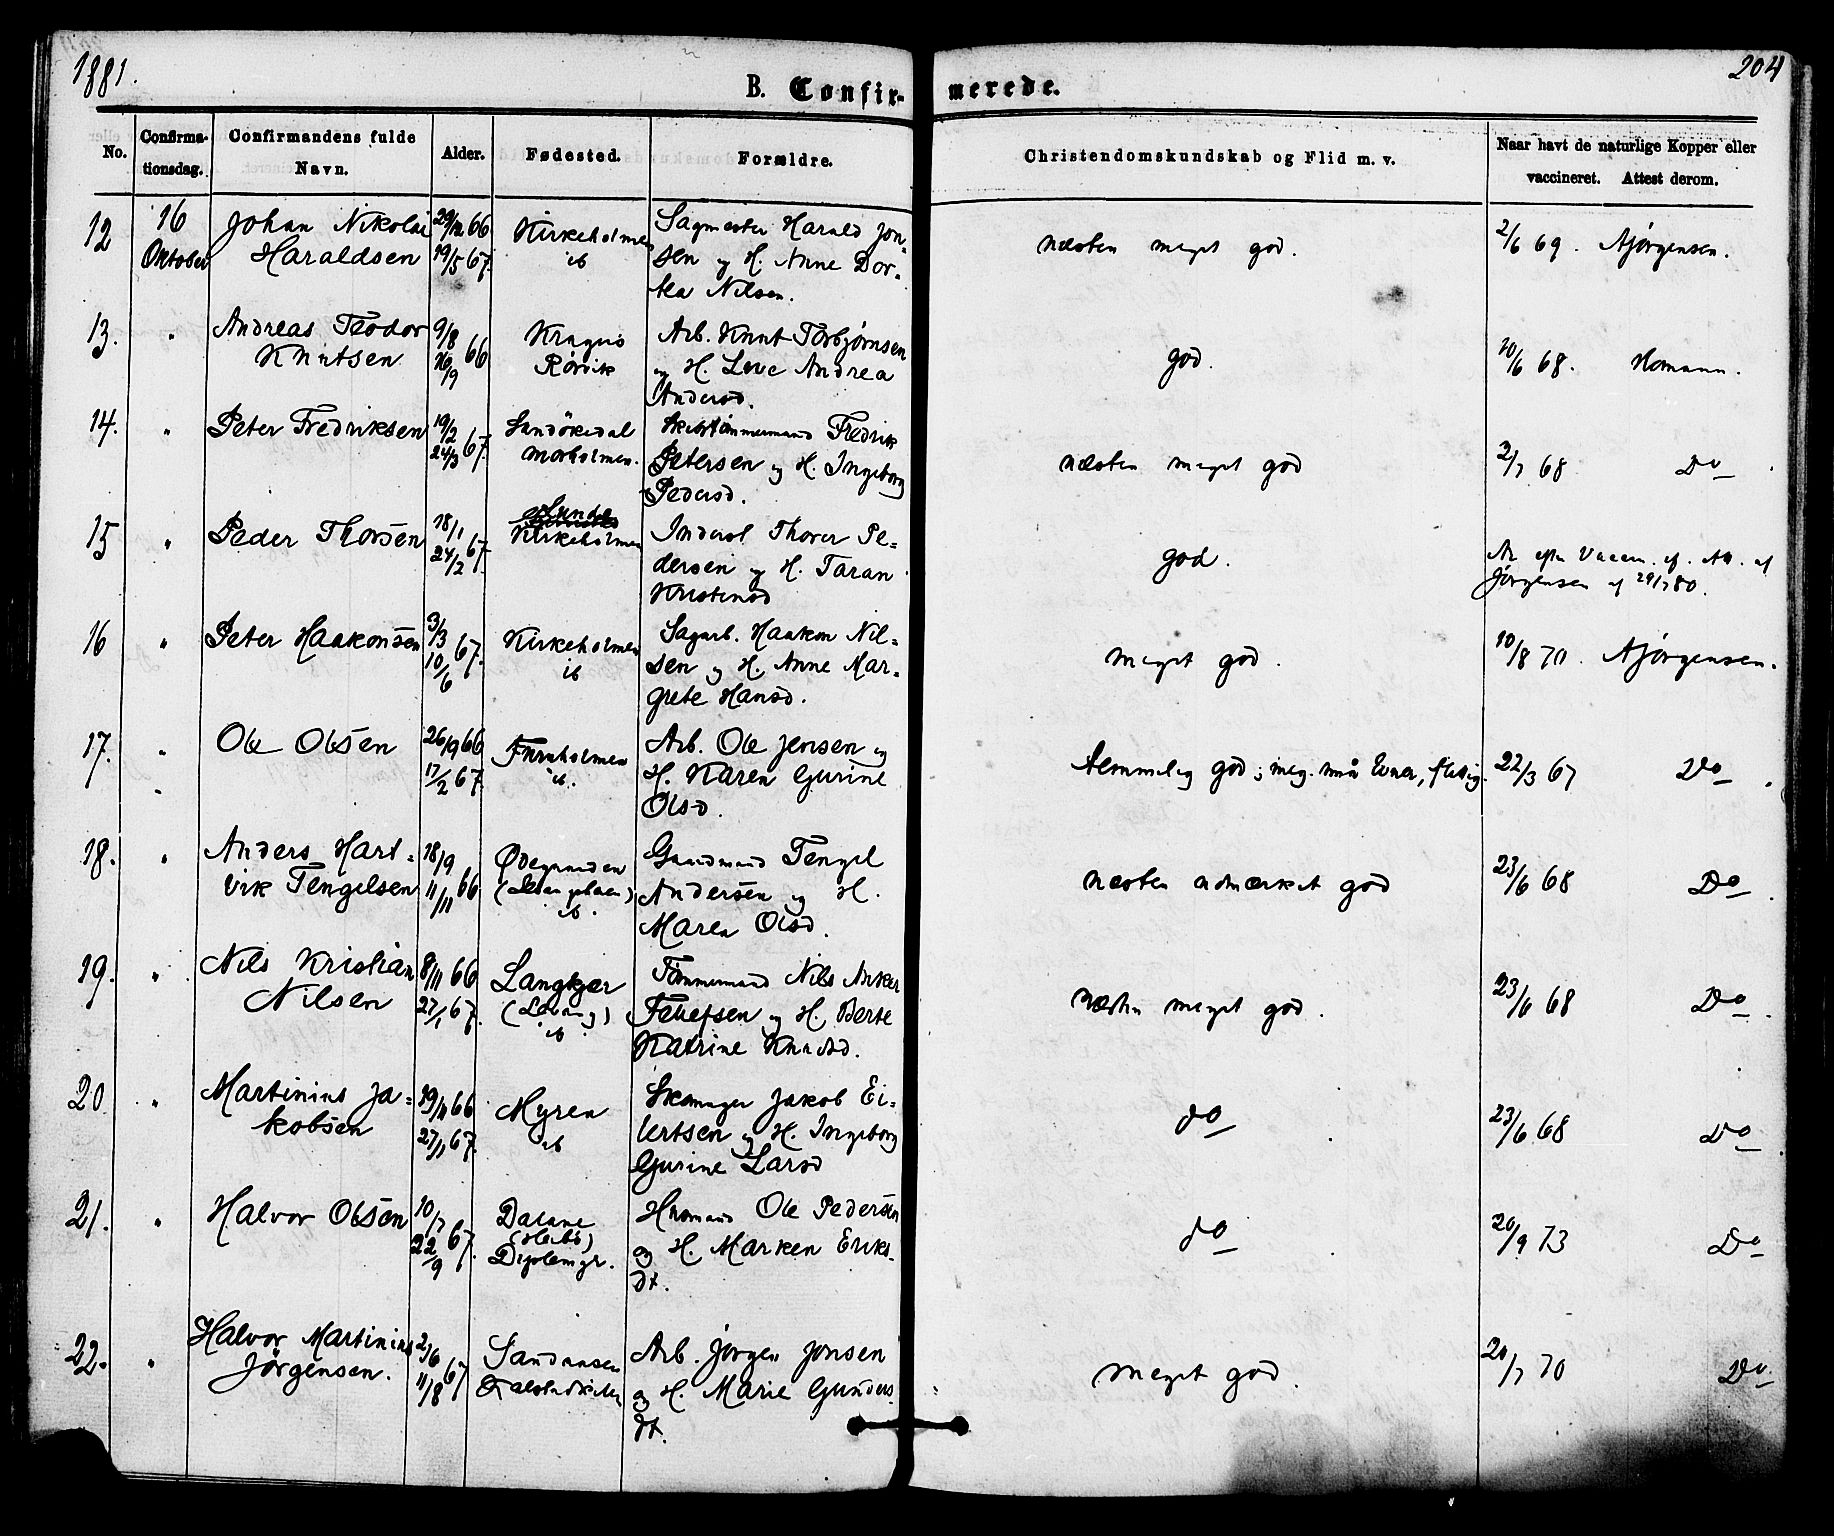 1881.
204
B. Confir- merede.
No.
Confirma-
tionsdag.
Confirmandens fulde
Navn.
Alder.
Fødested.
Forældre.
Christendomskundskab og Flid m. v.
Naar havt de naturlige Kopper eller
vaccineret. Attest derom.
12 16 Johan Nikolai 29/12 66 Kirkeholmen Sagmester Harald Jon-
Oktober Haraldsen 19/5 67. ib sen og H. Anne Dor-
thea Nilsen.
næsten meget god. 2/6 69. AJørgensen.
13. " Andreas Teodor 9/8 Kragerø Arb. Knut Torbjørnsen
Knutsen 16/9 66 Rørvik og H. Andrea
Andersd.
god. 10/6 68. Homann.
14. " Peter Fredriksen 19/2 Sandökedal Skibstømmermand Fredrik
24/3 67. Petersen og H. Ingeborg
Pedersd.
næsten meget god 2/7 68 Do
15 " Peder Thorsen 18/1 Kirkeholmen Inderst Thorer Pe-
24/2 67. dersen og H. Taran
Kristensd
god. Jørgensen af 29/7 80.
16 " Peter Haakonsen 3/3 Kirkeholmen Sagarb. Haakon Nil-
10/6 67. ib sen og H. Anne Mar-
grete Hansd.
meget god. 10/8 70. AJörgensen.
17. " Ole Olsen 26/9 66 Furuholmen Arb. Ole Jensen og
17/2 67. ib. H. Karen Gurine
Olsd.
temmelig god; meg. små Evner, flittig. 22/3 67 Do
18. " Anders Hart- 18/9 Ødegaarden Gaardmand Tengel
vik Tengelsen 11/11 66 ib. Andersen og H.
Maren Olsd.
næsten udmærket god 23/6 68 Do
19. " Nils Kristian 8/11 66 Langkjær Tømmermand Nils Anker
Nilsen 27/1 67. ib og H. Berte
Katrine Knutsd.
næsten meget god. 23/6 68 Do
20. " Martinius Ja- 19/11 66 Myren Skomager Jakob Ei-
kobsen 27/1 67. ib lertsen og H. Ingeborg
Gurine Larsd
do 23/6 68 Do
21. " Halvor Olsen 10/7 Dalane Husmand Ole Pedersen
22/9 67. (Heibö) og H. Marken Eriks-
dt.
do 20/9 73 Do
22. " Halvor Martinius 2/6 Sandaasen Arb. Jörgen Jonsen
Jörgensen. 11/8 67 og H. Marie Gunders
dt.
meget god. 20/7 70 Do.